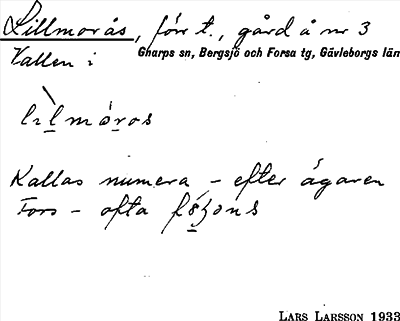 Lillmorås, förr t., gård å nr 3
Vallen i Gnarps sn, Bergsjö och Forsa tg, Gävleborgs län
Kallas numera – efter ägaren
Fors – ofta
LARS LARSSON 1933